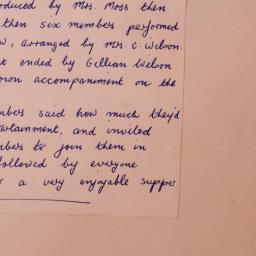 oduced by Mrs. Moss then
then six members performed
w, arranged by Mrs. C. Wilson.
t ended by Gillian Wilson
own accompaniment on the
mbers said how much they'd
tertainment, and invited
mbers to join them in
followed by everyone
a very enjoyable supper